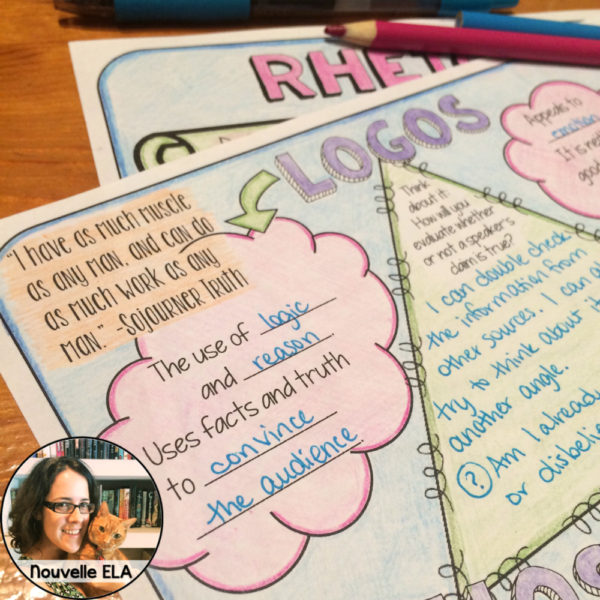 RHET
LOGOS
"I have as much muscle
as any man, and can do
as much work as any
man." -Sojourner Truth
The use of logic
and reason.
Uses facts and truth
to convince
the audience.
Think
about it:
How will you
evaluate whether
or not a speaker's
claim is true?
I can double check
the information from
other sources. I can al
try to think about it
another angle.
? Am I already
or disbelie
Appeals to
emotion
It is
good
Nouvelle ELA